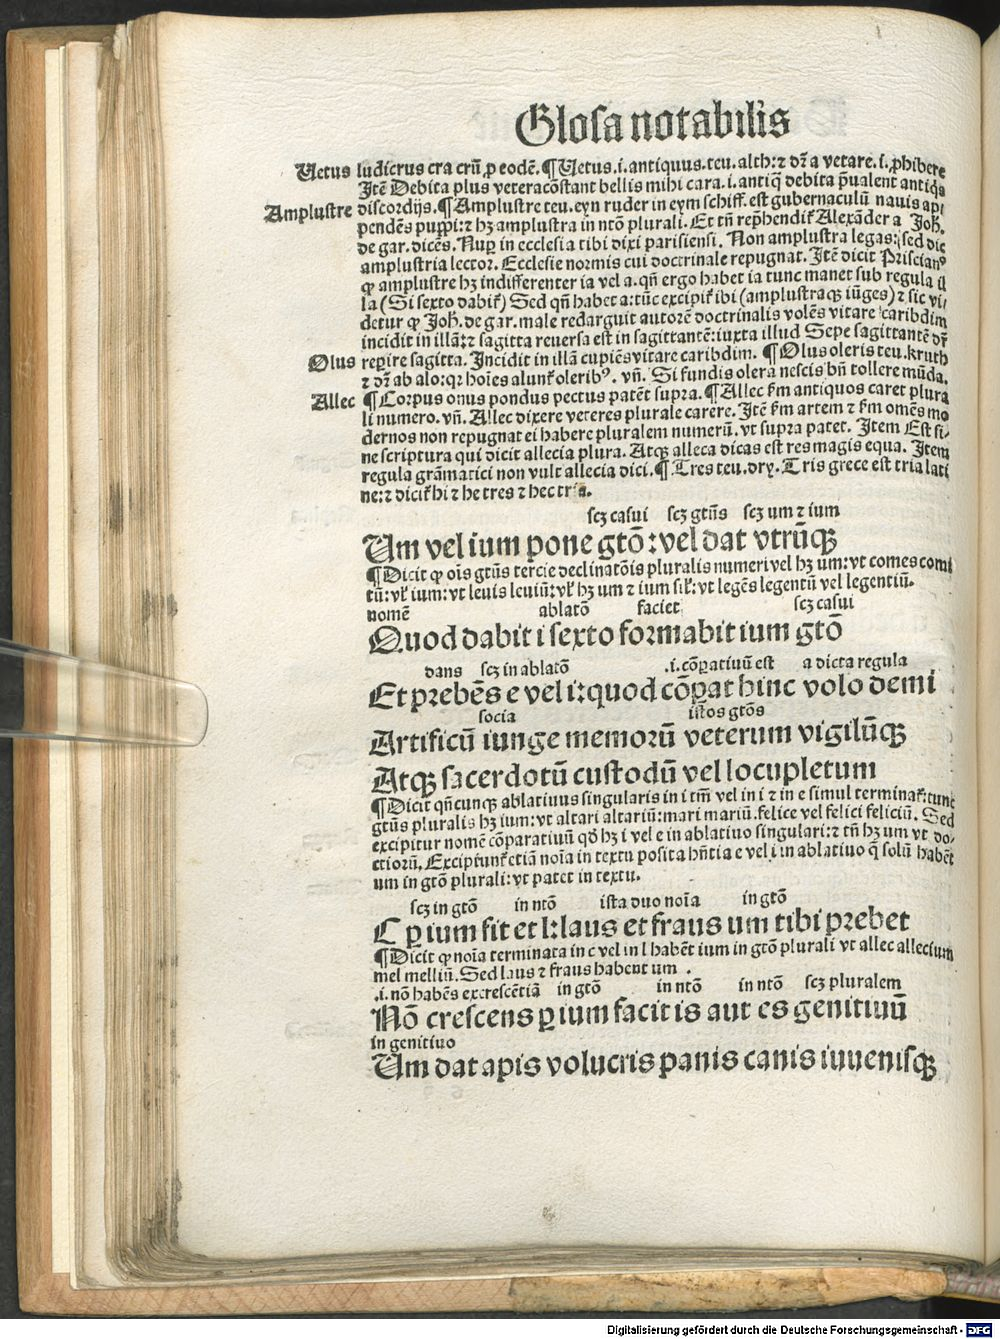 Glosa notabilis
Uetus ludicrus cra crū ꝓ eodē. ¶ Uetus .i. antiquus. teu. alth: ⁊ dr̄ a vetare .i. ꝓhibere
Itē Debita plus vetera cōstant bellis mihi cara .i. antiq̄ debita p̄ualent antiq̄s
Amplustre discordijs. ¶ Amplustre teu. eyn ruder in eym schiff. est gubernaculū nauis api
pendēs puppi: ⁊ hꝫ amplustra in ntō plurali. Et tn̄ rep̄hendit᷑ Alexāder a Joh̄.
de gar. dicēs. Nuꝑ in ecclesia tibi dixi parisiensi. Non amplustra legas: sed dic
amplustria lector. Ecclesie normis cui doctrinale repugnat. Itē dicit Priscianꝰ
ꝙ amplustre hꝫ indifferenter ia vel a. qn̄ ergo habet ia tunc manet sub regula il
la (Si sexto dabit᷑) Sed qn̄ habet a: tūc excipit᷑ ibi (amplustraqꝫ iūges) ⁊ sic vi/
detur ꝙ Joh̄. de gar. male redarguit autorē doctrinalis volēs vitare caribdim
incidit in illā: ⁊ sagitta reuersa est in sagittantē: iuxta illud Sepe sagittantē dr̄
Olus reꝑire sagitta. Incidit in illā cupiēs vitare caribdim. ¶ Olus oleris teu. kruth
⁊ dr̄ ab alo: qꝛ hoīes alunt᷑ oleribꝰ. vn̄. Si fundis olera nescis bn̄ tollere mūda.
Allec ¶ Corpus onus pondus pectus patēt supra. ¶ Allec s̄m antiquos caret plura
li numero. vn̄. Allec dixere veteres plurale carere. Itē s̄m artem ⁊ s̄m omēs mo
dernos non repugnat ei habere pluralem numerū. vt supra patet. Item Est si/
ne scriptura qui dicit allecia plura. Atqꝫ alleca dicas est res magis equa. Item
regula grāmatici non vult allecia dici. ¶ Tres teu. dry. Tris grece est tria lati
ne: ⁊ dicit᷑ hi ⁊ he tres ⁊ hec tria.
scꝫ casui scꝫ gtūs scꝫ um ⁊ ium
Um vel ium pone gtō: vel dat vtrūqꝫ
¶ Dicit ꝙ oīs gtūs tercie declinatōis pluralis numeri vel hꝫ um: vt comes comi
tū: vl᷑ ium: vt leuis leuiū: vl᷑ hꝫ um ⁊ ium sil᷑: vt legēs legentū vel legentiū.
nomē ablatō faciet scꝫ casui
Quod dabit i sexto formabit ium gtō
dans scꝫ in ablatō .i. cōꝑatiuū est a dicta regula
Et prebēs e vel i: quod cōꝑat hinc volo demi
socia istos gtōs
Artificū iunge memorū veterum vigilūqꝫ
Atqꝫ sacerdotū custodū vel locupletum
¶ Dicit qn̄cunqꝫ ablatiuus singularis in i tm̄ vel in i ⁊ in e simul terminat᷑: tunc
gtūs pluralis hꝫ ium: vt altari altariū: mari mariū. felice vel felici feliciū. Sed
excipitur nomē cōparatiuū qd̄ hꝫ i vel e in ablatiuo singulari: ⁊ tn̄ hꝫ um vt do/
ctiorū. Excipiunt᷑ etiā noīa in textu posita hn̄tia e vel i in ablatiuo q̄ solū habēt
um in gtō plurali: vt patet in textu.
scꝫ in gtō in ntō ista duo noīa in gtō
C ꝑ ium fit et l: laus et fraus um tibi prebet
¶ Dicit ꝙ noīa terminata in c vel in l habēt ium in gtō plurali vt allec allecium
mel melliū. Sed laus ⁊ fraus habent um .
.i. nō habēs excrescētiā in gtō in ntō in ntō scꝫ pluralem
Nō crescens ꝑ ium facit is aut es genitiuū
in genitiuo
Um dat apis volucris panis canis iuuenisqꝫ
Digitalisierung gefördert durch die Deutsche Forschungsgemeinschaft - DFG